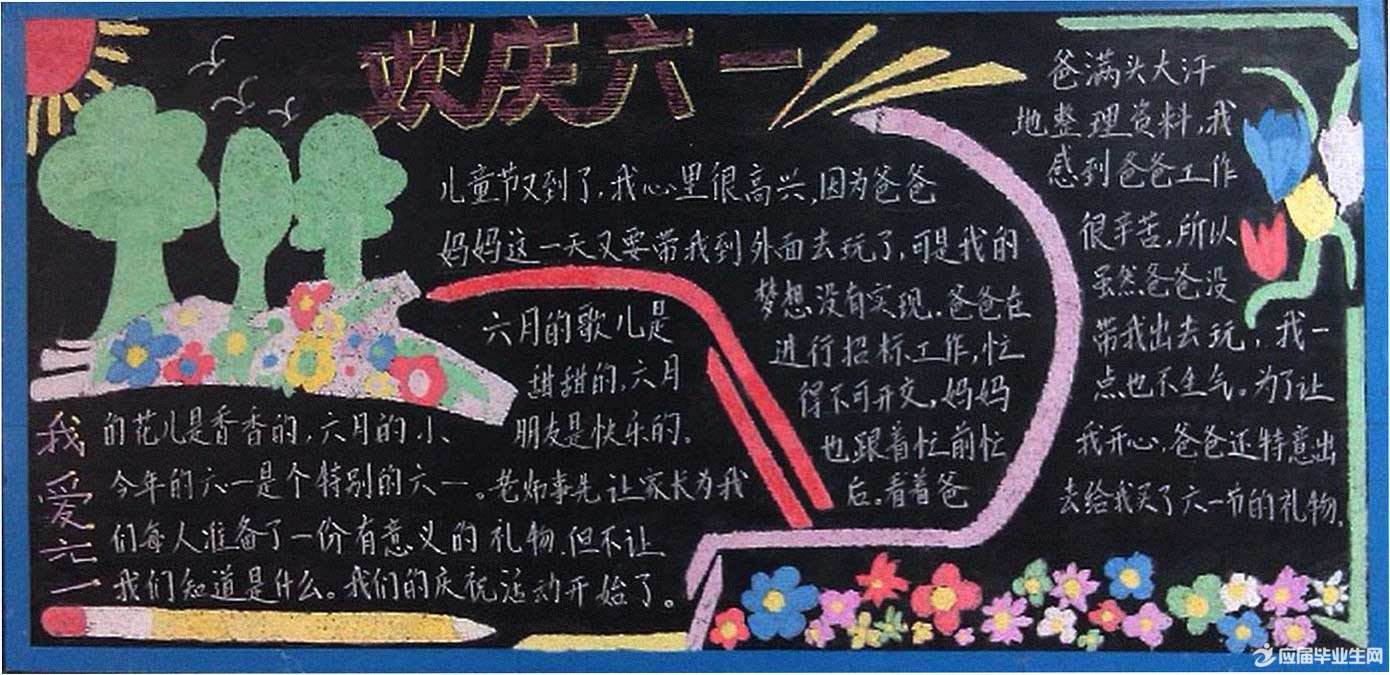 欢庆六一
儿童节又到了,我心里很高兴,因为爸爸
妈妈这一天又要带我到外面去玩了,可是我的
梦想没有实现.爸爸在
进行招标工作,忙
得不可开交,妈妈
也跟着忙前忙
后。看着爸
爸满头大汗
地整理资料,我
感到爸爸工作
很辛苦,所以
虽然爸爸没
带我出去玩,我一
点也不生气。为了让
我开心,爸爸还特意出
去给我买了六一节的礼物.
我爱六一
六月的歌儿是
甜甜的,六月
的花儿是香香的,六月的小
朋友是快乐的。
今年的六一是个特别的六一。老师事先让家长为我
们每人准备了一份有意义的礼物,但不让
我们知道是什么。我们的庆祝活动开始了。
应届毕业生网